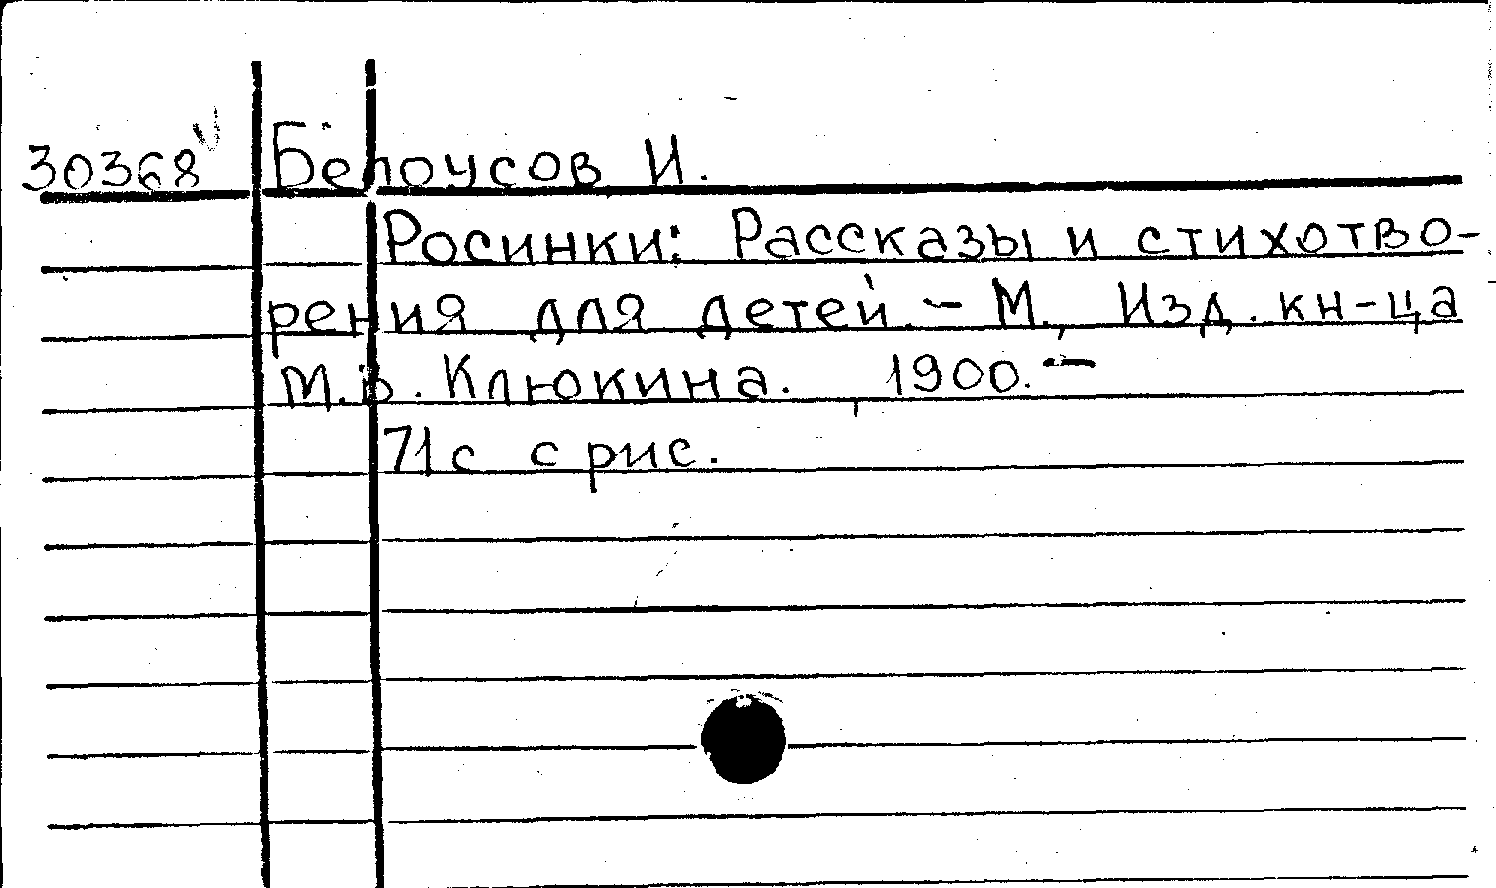 30368 Белоусов И.
Росинки: Рассказы и стихотво-
рения для детей. - М., Изд. кн-ца
М.В. Клюкина. , 1900. -
71с с рис.